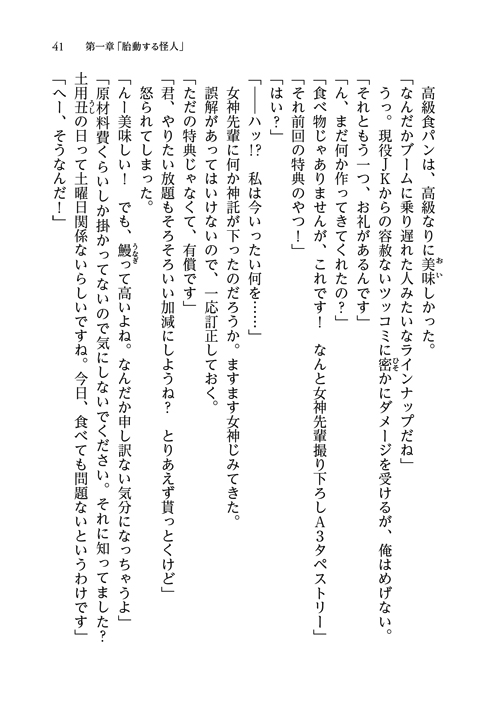 41　第一章「胎動する怪人」
高級食パンは、高級なりに美味しかった。
「なんだかブームに乗り遅れた人みたいなラインナップだね」
うっ。現役ＪＫからの容赦ないツッコミに密かにダメージを受けるが、俺はめげない。
「それともう一つ、お礼があるんです」
「ん、まだ何か作ってきてくれたの？」
「食べ物じゃありませんが、これです！　なんと女神先輩撮り下ろしＡ３タペストリー」
「それ前回の特典のやつ！」
「はい？」
「――ハッ!?　私は今いったい何を……」
女神先輩に何か神託が下ったのだろうか。ますます女神じみてきた。
誤解があってはいけないので、一応訂正しておく。
「ただの特典じゃなくて、有償です」
「君、やりたい放題もそろそろいい加減にしようね？　とりあえず貰っとくけど」
怒られてしまった。
「んー美味しい！　でも、鰻って高いよね。なんだか申し訳ない気分になっちゃうよ」
「原材料費くらいしか掛かってないので気にしないでください。それに知ってました？
土用丑の日って土曜日関係ないらしいですね。今日、食べても問題ないというわけです」
「へー、そうなんだ！」